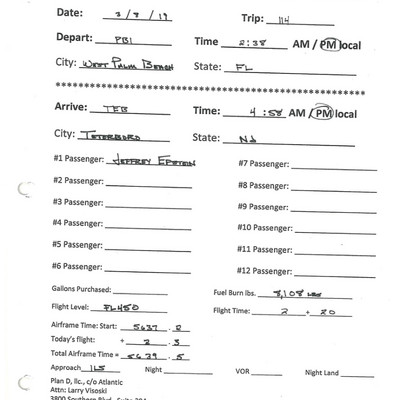 Date: 3/8/19 Trip: 114
Depart: PBI Time 2:38 AM / PM local
City: West Palm Beach State: FL
**************************************************
Arrive: TEB Time: 4:58 AM / PM local
City: Teterboro State: NJ
#1 Passenger: Jeffrey Epstein #7 Passenger:
#2 Passenger: #8 Passenger:
#3 Passenger: #9 Passenger:
#4 Passenger: #10 Passenger:
#5 Passenger: #11 Passenger:
#6 Passenger: #12 Passenger:
Gallons Purchased: Fuel Burn lbs. 8,108 lbs
Flight Level: FL450 Flight Time: 2 + 20
Airframe Time: Start: 5637 . 2
Today's flight: + 2 . 3
Total Airframe Time = 5639 . 5
Approach ILS Night VOR Night Land
Plan D, llc., c/o Atlantic
Attn: Larry Visoski
3800 Southern Blvd., Suite 204